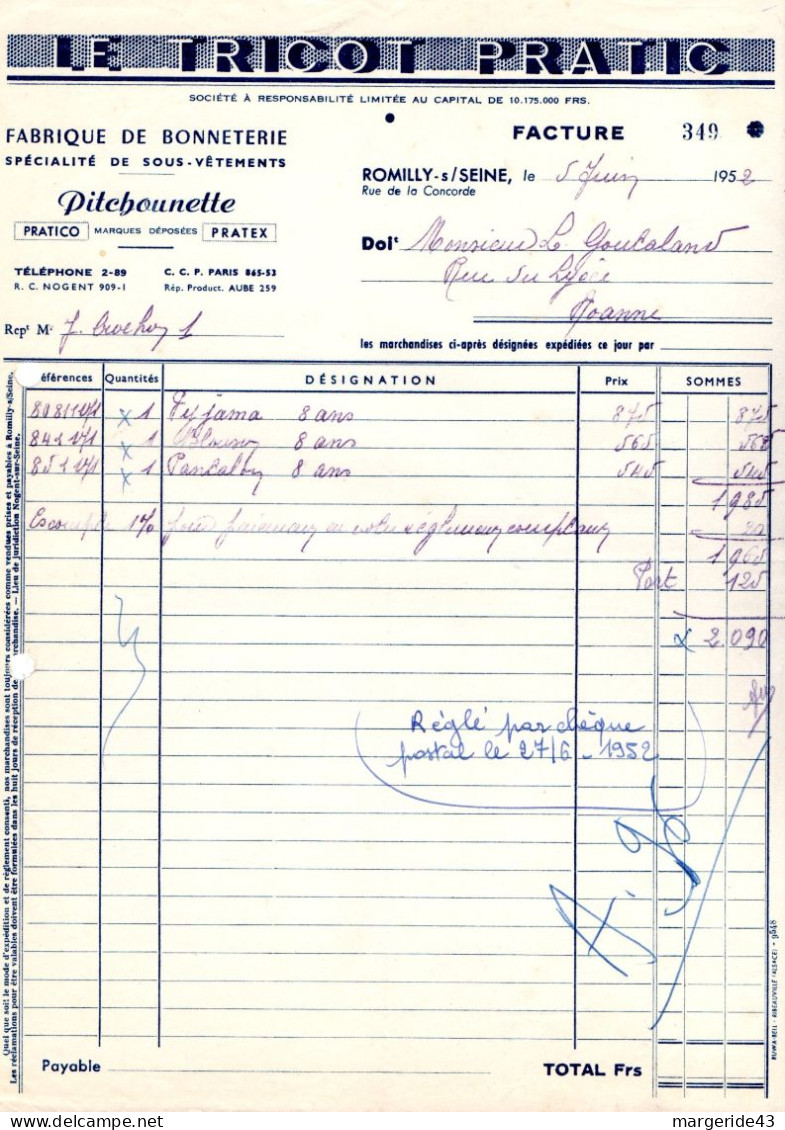 LE TRICOT PRATIC
SOCIÉTÉ À RESPONSABILITÉ LIMITÉE AU CAPITAL DE 10.175.000 FRS.
FABRIQUE DE BONNETERIE
SPÉCIALITÉ DE SOUS-VÊTEMENTS
Pitchounette
PRATICO MARQUES DÉPOSÉES PRATEX
TÉLÉPHONE 2-89 C. C. P. PARIS 865-53
R. C. NOGENT 909-I Rép. Product. AUBE 259
Repᵗ Mʳ J.
FACTURE 349
ROMILLY-s/SEINE, le 5 Juin 1952
Rue de la Concorde
Doiᵗ Monsieur L. Goutaland
Rue du Lycée
Roanne
les marchandises ci-après désignées expédiées ce jour par
éférences Quantités DÉSIGNATION Prix SOMMES
x 1 Pyjama 8 ans 875 875
x 1 Blouson 8 ans 565 565
x 1 Pantalon 8 ans 545 545
1985
Escompte 1% pour paiement
20
1965
Port 125
2.090
Réglé par chèque
postal le 27/6 - 1952
Payable TOTAL Frs
Quel que soit le mode d'expédition et de règlement consenti, nos marchandises sont toujours considérées comme vendues prises et payables à Romilly-s/Seine.
Les réclamations pour être valables doivent être formulées dans les huit jours de réception de marchandise. — Lieu de juridiction Nogent-sur-Seine.
RUWA-BEIL - RIBEAUVILLÉ (ALSACE) - 9548
margeride43